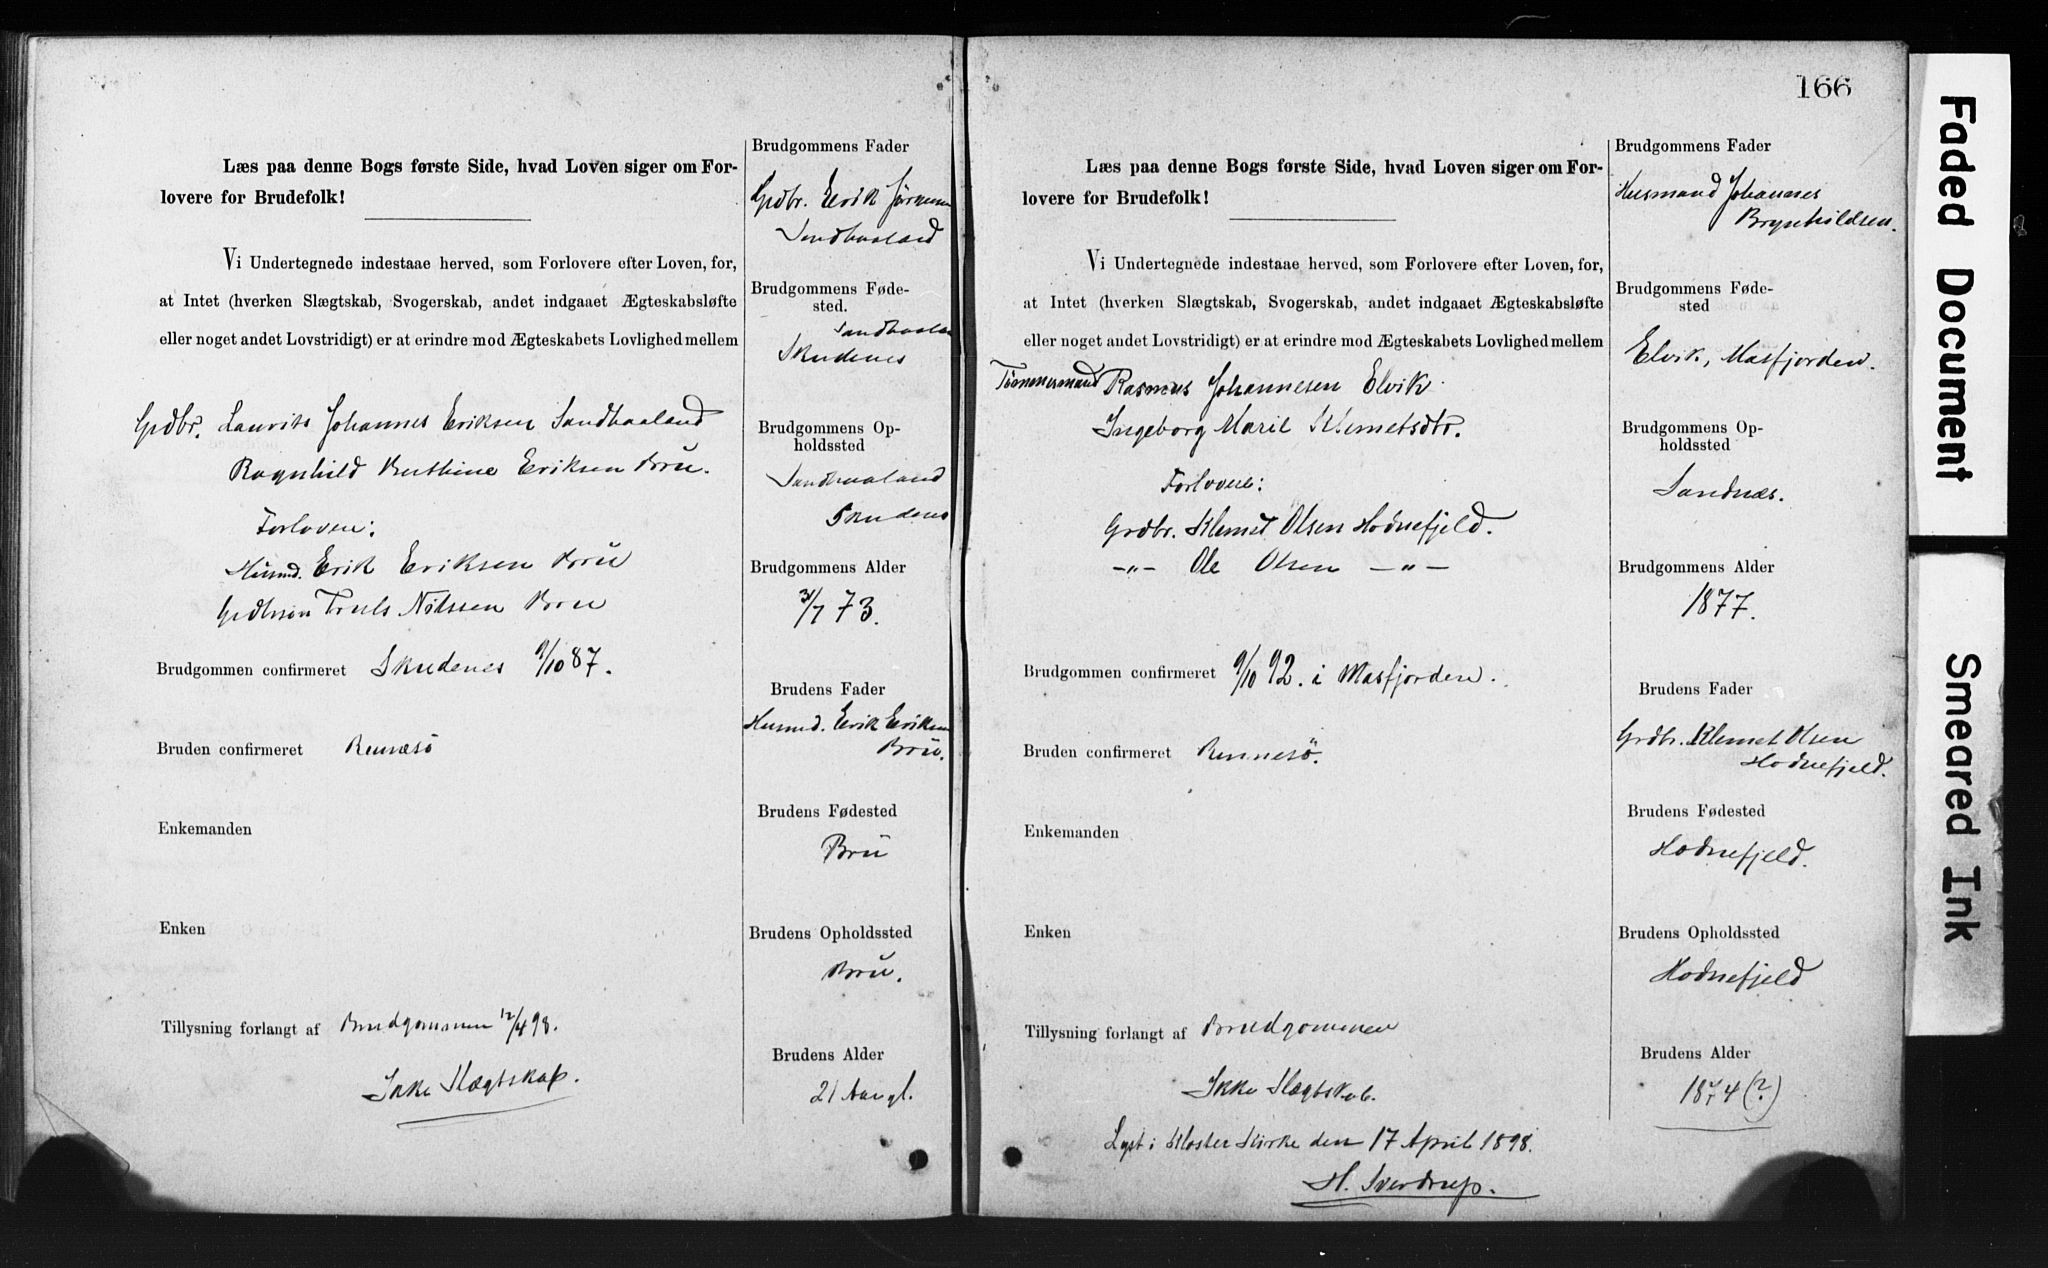 Læs paa denne Bogs første Side, hvad Loven siger om For-
lovere for Brudefolk!
Vi Undertegnede indestaae herved, som Forlovere efter Loven, for,
at Intet (hverken Slægtskab, Svogerskab, andet indgaaet Ægteskabsløfte
eller noget andet Lovstridigt) er at erindre mod Ægteskabets Lovlighed mellem
Grdbr. Laurits Johannes Eriksen Sandhaaland
Ragnhild Berthine Eriksen Bru.
Forlovere:
Husmd. Erik Eriksen Bru
Truls Nilssen Bru
Brudgommen confirmeret Skudenes 9/10 87.
Bruden confirmeret Rennesö
Enkemanden
Enken
Tillysning forlangt af Brudgommen 12/4 98.
Ikke Slægtskap.
Brudgommens Fader
Grdbr. Erik
Sandhaaland
Brudgommens Føde-
sted.
Sandhaaland
Skudenes
Brudgommens Op-
holdssted
Sandhaaland
Skudenes
Brudgommens Alder
31/7 73.
Brudens Fader
Husmd. Erik Eriksen
Bru.
Brudens Fødested
Bru
Brudens Opholdssted
Bru.
Brudens Alder
21 Aar gl.
166
Læs paa denne Bogs første Side, hvad Loven siger om For-
lovere for Brudefolk!
Vi Undertegnede indestaae herved, som Forlovere efter Loven, for,
at Intet (hverken Slægtskab, Svogerskab, andet indgaaet Ægteskabsløfte
eller noget andet Lovstridigt) er at erindre mod Ægteskabets Lovlighed mellem
Tömmermand Rasmus Johannesen Elvik
Ingeborg Marie Klemetsdtr.
Forlovere:
Grdbr. Klemet Olsen Hodnefjeld.
-"- Ole Olsen -"-
Brudgommen confirmeret 9/10 92. i Masfjorden.
Bruden confirmeret Rennesö.
Enkemanden
Enken
Tillysning forlangt af Brudgommen
Ikke Slægtskab.
Lyst i Kloster Kirke den 17 April 1898.
H. Sverdrup.
Brudgommens Fader
Husmand Johannes
Brynhildsen.
Brudgommens Føde-
sted
Elvik, Masfjorden.
Brudgommens Op-
holdssted
Sandnæs.
Brudgommens Alder
1877.
Brudens Fader
Grdbr. Klemet Olsen
Hodnefjeld.
Brudens Fødested
Hodnefjeld.
Brudens Opholdssted
Hodnefjeld
Brudens Alder
1874 (?)
Faded Document
Smeared Ink